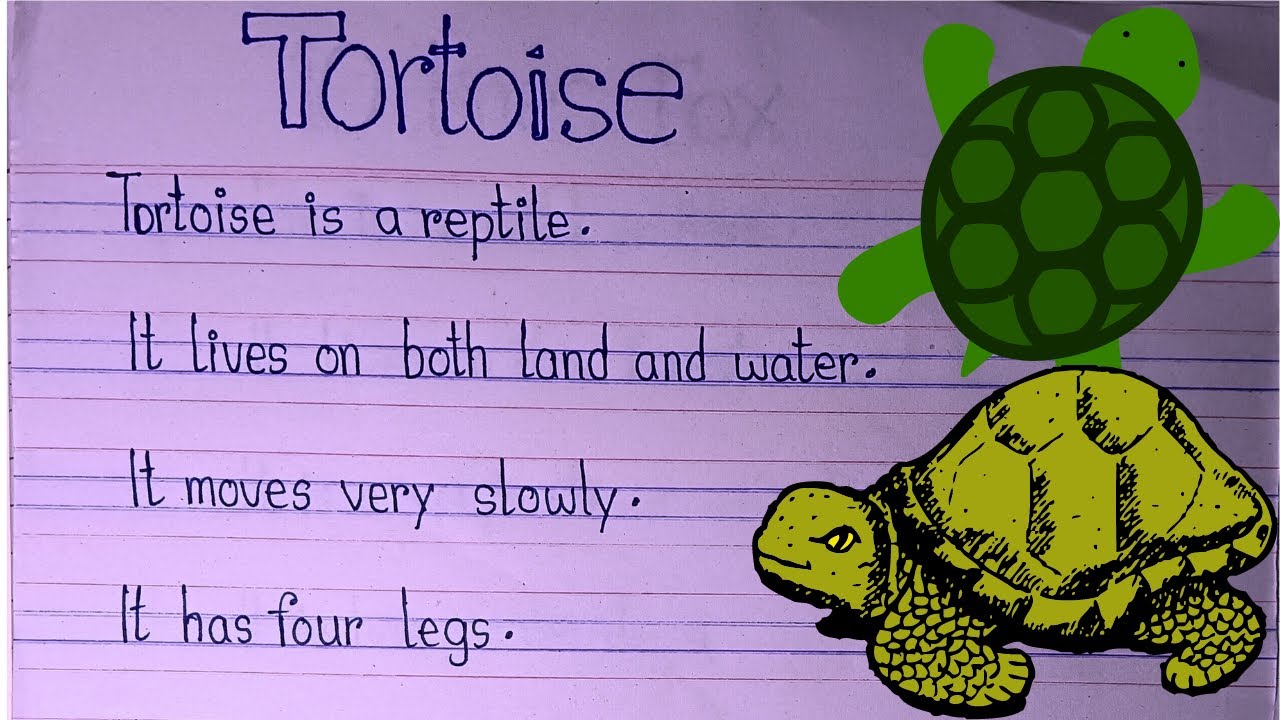 Tortoise
Tortoise is a reptile.
It lives on both land and water.
It moves very slowly.
It has four legs.